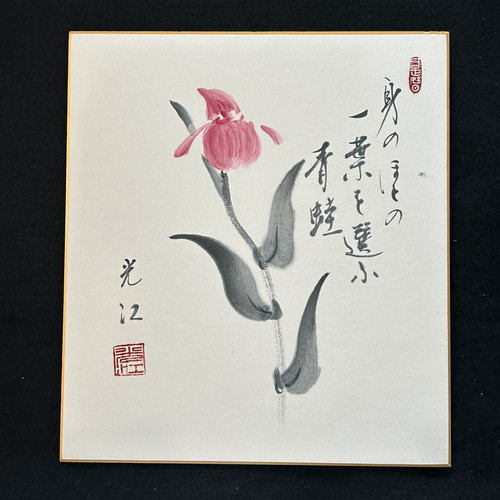 身のほとの
一葉を選ふ
青蛙
光江